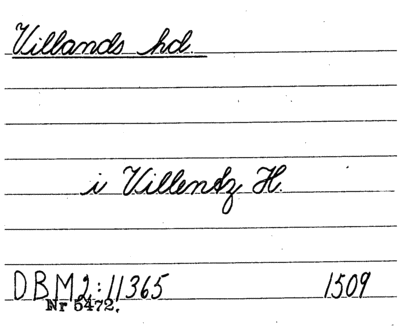 Villands hd.
i Villendz H.
DBM2:11365 1509
Nr 5472.